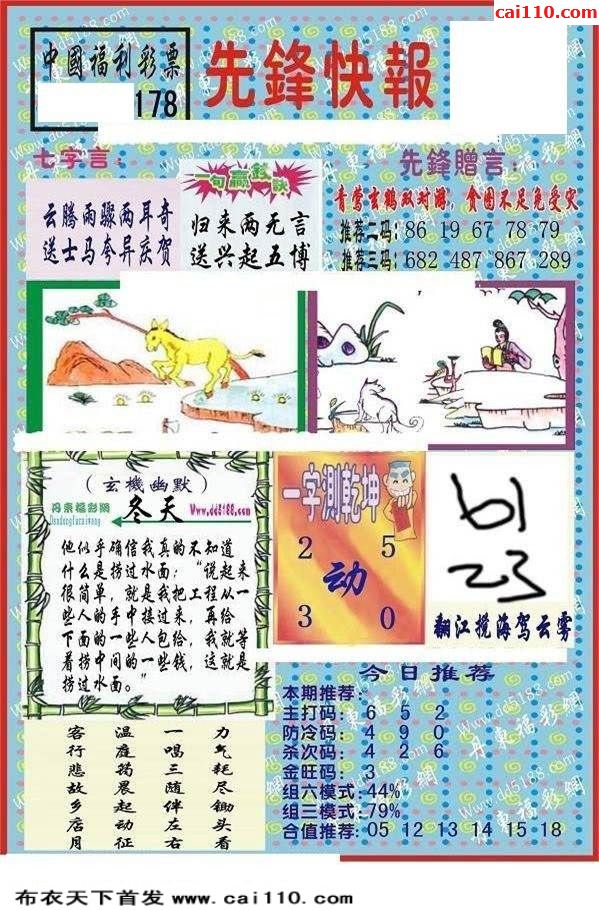 cai110.com
中國福利彩票
178
先鋒快報
七字言：
云腾雨骤两耳奇
送士马夸异庆贺
一句赢钱诀
归来两无言
送兴起五博
先鋒贈言：
青莺玄鹤双对游，食困不足免受灾
推荐二码：86 19 67 78 79
推荐三码：682 487 867 289
（玄機幽默）
丹東福彩网
Dandongfucaiwang
冬天
Www.dd5188.com
他似乎确信我真的不知道
什么是捞过水面：“说起来
很简单，就是我把工程从一
些人的手中接过来，再给
下面的一些人包给，我就等
着捞中间的一些钱，这就是
捞过水面。”
一字測乾坤
2 5
动
3 0
61
23
翻江搅海驾云雾
今日推荐
本期推荐：
主打码：6 5 2
防冷码：4 9 0
杀次码：4 2 6
金旺码：3
组六模式：44%
组三模式：79%
合值推荐：05 12 13 14 15 18
力气耗尽锄头看
一唱三随伴左右
温庭筠晨起动征
客行悲故乡店月
布衣天下首发 www.cai110.com